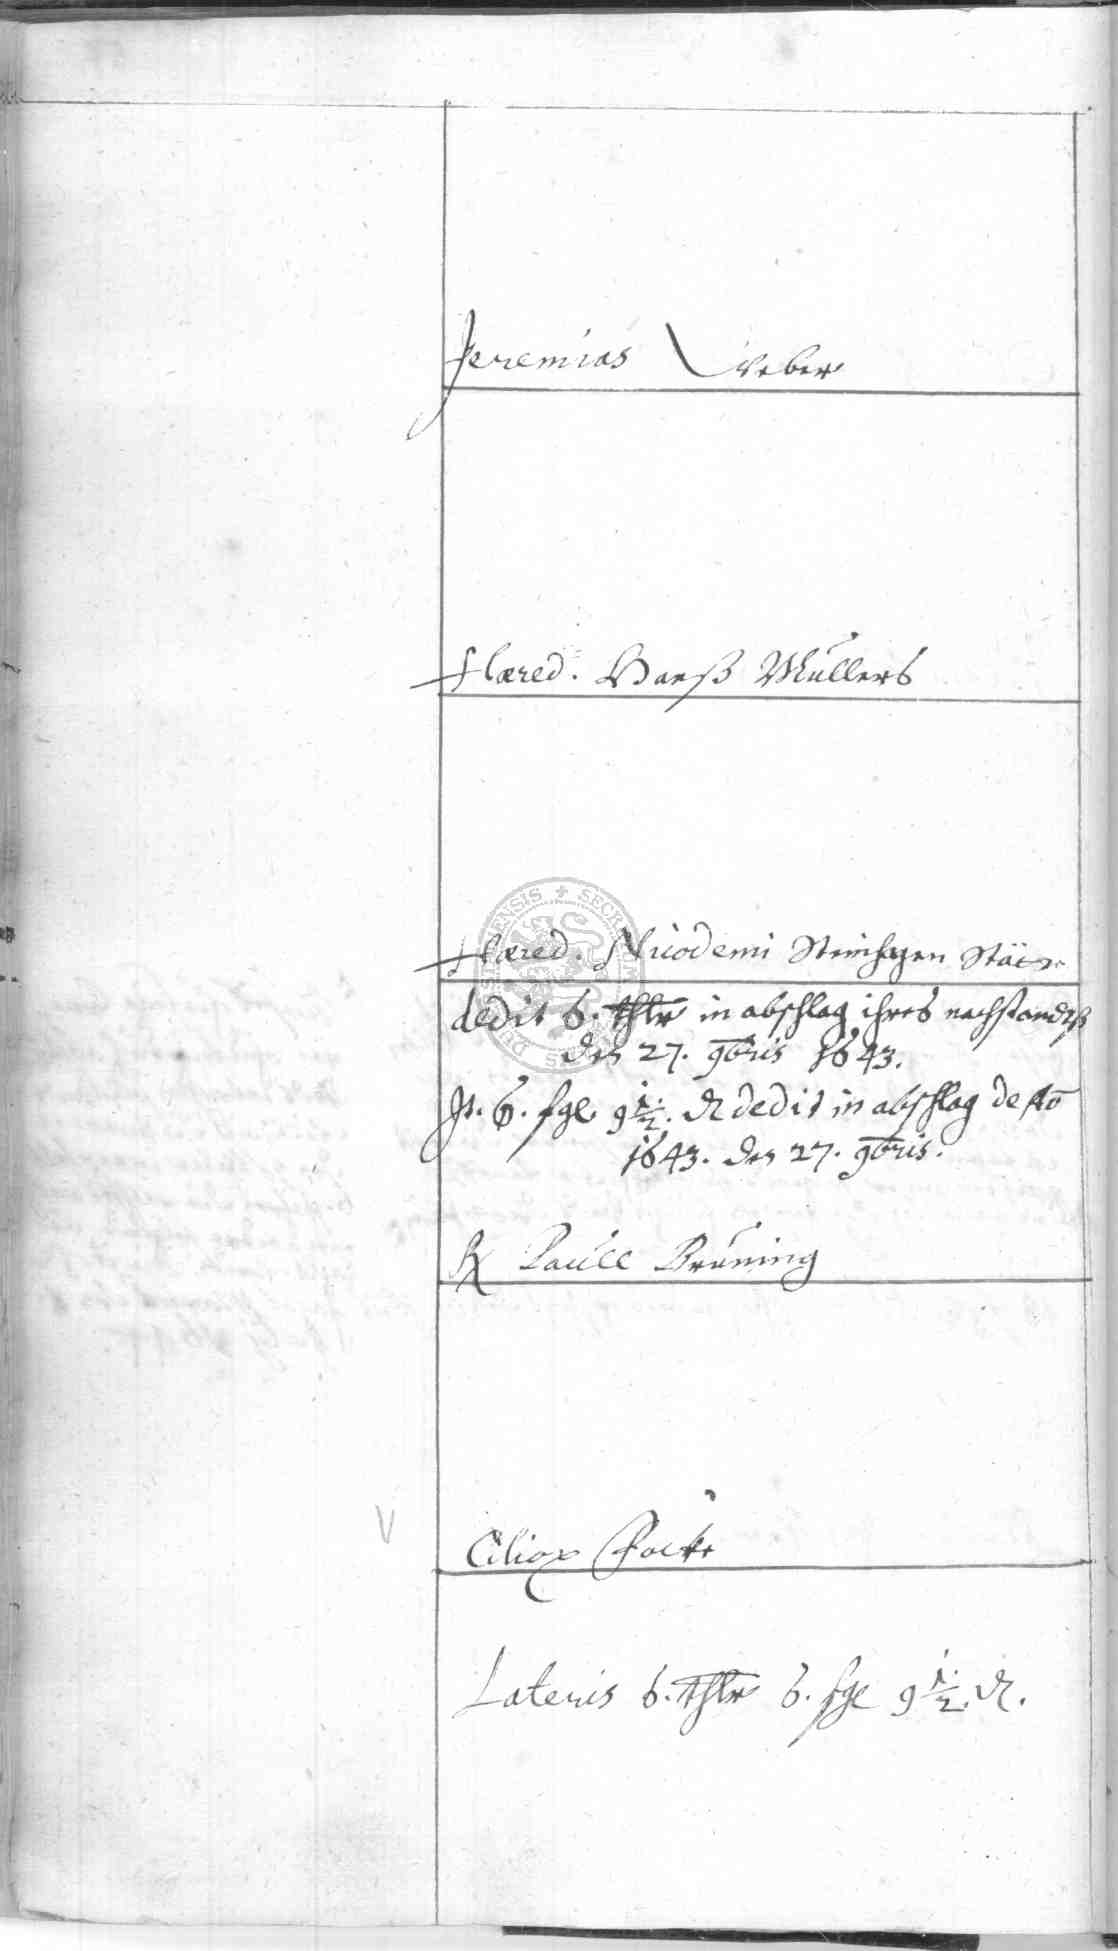 Jeremias Weber
Hæred. Hanß Müllers
Hæred. Nicodemi Steinhagen
dedit 6. thlr in abschlag ihres nachstandes
den 27. 9bris 1643.
It. 6. sgl. 9 1/2. ₰ dedit in abschlag de Ao
1643. den 27. 9bris.
Paull Brüning
Ciliax
Lateris 6. thlr 6. sgl 9 1/2. ₰.